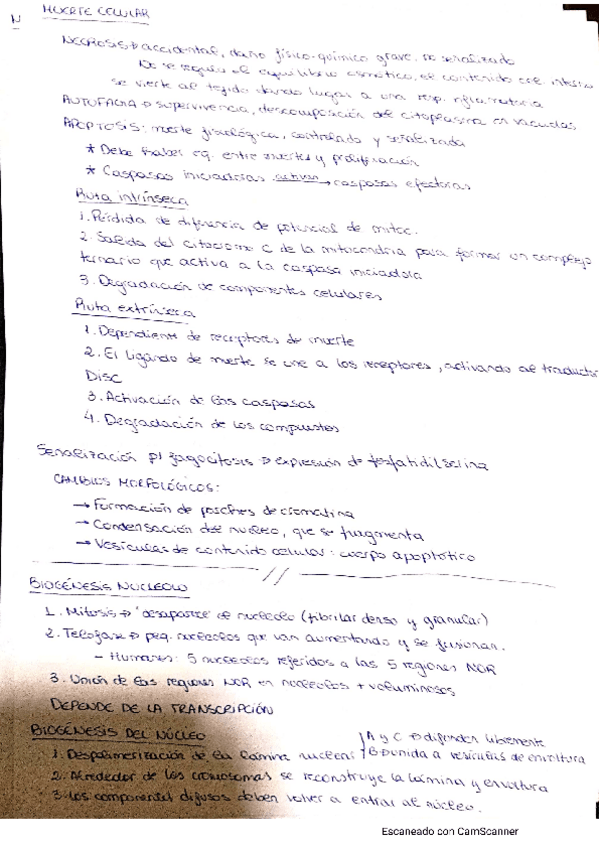 N
MUERTE CELULAR
NECROSIS → accidental, daño físico-químico grave. no señalizado
No se regula el equilibrio osmótico, el contenido cel. interno
se vierte al tejido dando lugar a una resp. inflamatoria
AUTOFAGIA → supervivencia, descomposición del citoplasma en vacuolas
APOPTOSIS: muerte fisiológica, controlada y señalizada
* Debe haber eq. entre muerte y proliferación
* Caspasas iniciadoras activan → caspasas efectoras
Ruta intrínseca
1. Pérdida de diferencia de potencial de mitoc.
2. Salida del citocromo C de la mitocondria para formar un complejo
ternario que activa a la caspasa iniciadora
3. Degradación de componentes celulares
Ruta extrínseca
1. Dependiente de receptores de muerte
2. El ligando de muerte se une a los receptores, activando al traductor
Disc
3. Activación de las caspasas
4. Degradación de los compuestos
Señalización p/ fagocitosis → expresión de fosfatidilserina
CAMBIOS MORFOLÓGICOS:
→ Formación de parches de cromatina
→ Condensación del núcleo, que se fragmenta
→ Vesículas de contenido celular: cuerpo apoptótico
//
BIOGÉNESIS NUCLEOLO
1. Mitosis → 'desaparece' el nucleolo (fibrilar denso y granular)
2. Telofase → peq. nucleolos que van aumentando y se fusionan.
- Humanos: 5 nucleolos referidos a las 5 regiones NOR
3. Unión de las regiones NOR en nucleolos + voluminosos
DEPENDE DE LA TRANSCRIPCIÓN
BIOGÉNESIS DEL NÚCLEO
1. Despolimerización de la lámina nuclear: A y C → difunden libremente
B → unida a vesículas de envoltura
2. Alrededor de los cromosomas se reconstruye la lámina y envoltura
3. Los componentes difusos deben volver a entrar al núcleo.
Escaneado con CamScanner